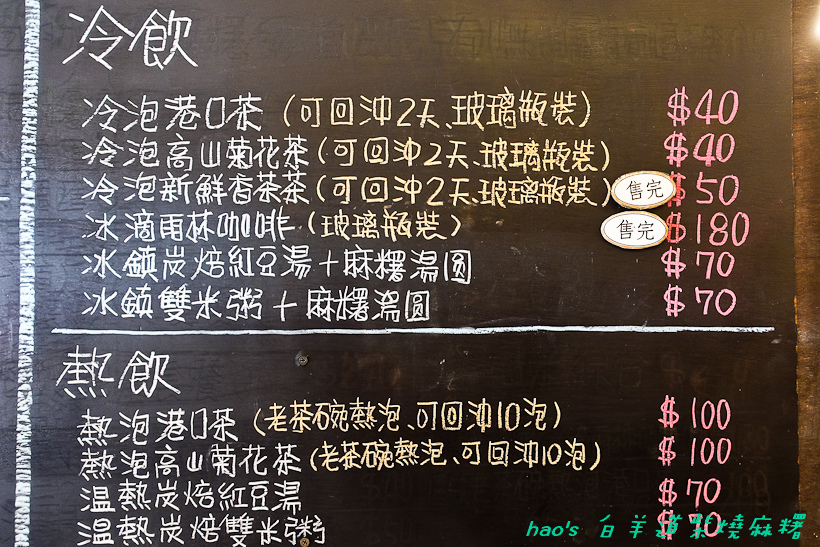 冷飲
冷泡港口茶（可回沖2天、玻璃瓶裝） $40
冷泡高山菊花茶（可回沖2天、玻璃瓶裝） $40
冷泡新鮮香茶茶（可回沖2天、玻璃瓶裝） 售完 $50
冰滴雨林咖啡（玻璃瓶裝） 售完 $180
冰鎮炭焙紅豆湯＋麻糬湯圓 $70
冰鎮雙米粥＋麻糬湯圓 $70
熱飲
熱泡港口茶（老茶碗熱泡、可回沖10泡） $100
熱泡高山菊花茶（老茶碗熱泡、可回沖10泡） $100
溫熱炭焙紅豆湯 $70
溫熱炭焙雙米粥 $70
hao's 白羊道柴燒麻糬